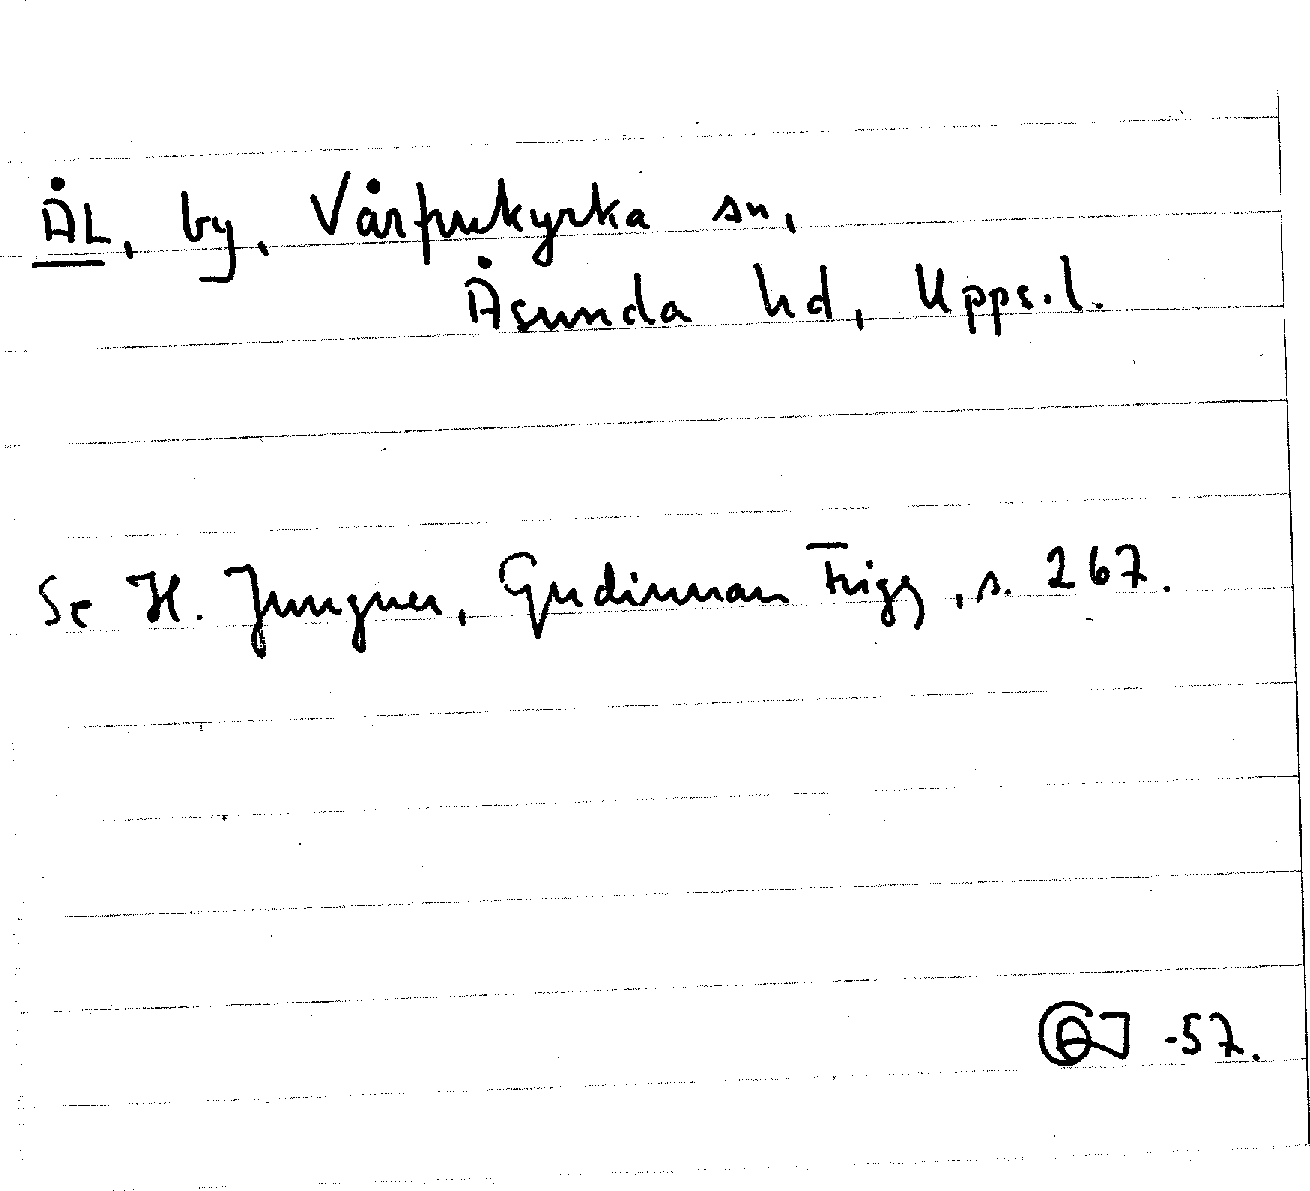 ÅL, by, Vårfrukyrka sn,
Åsunda hd, Upps.l.
Se H. Jungner, Gudinnan Frigg, s. 267.
-57.